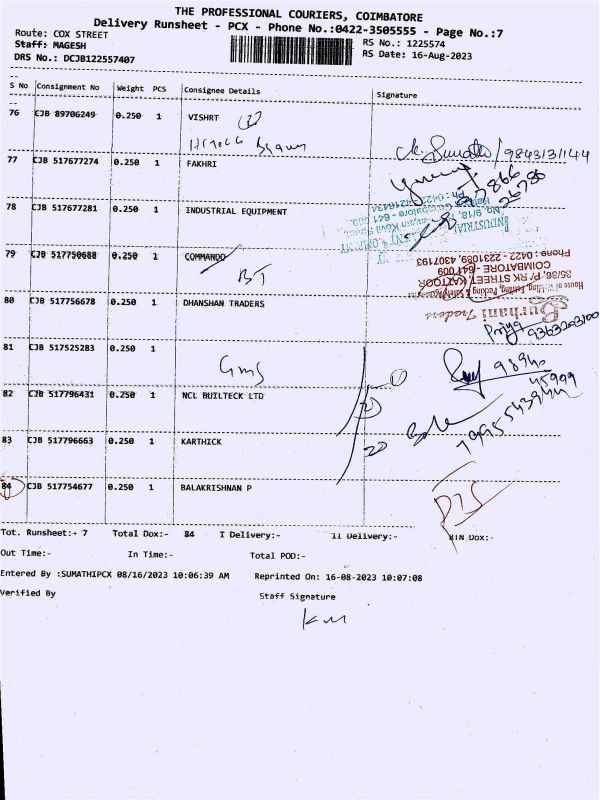 THE PROFESSIONAL COURIERS, COIMBATORE
Delivery Runsheet - PCX - Phone No.:0422-3505555 - Page No.:7
Route: COX STREET
RS No.: 1225574
Staff: MAGESH
RS Date: 16-Aug-2023
DRS No.: DCJB122557407
S No Consignment No Weight PCS Consignee Details Signature
76 CJB 89706249 0.250 1 VISHRT
9843131144
77 CJB 517677274 0.250 1 FAKHRI
78 CJB 517677281 0.250 1 INDUSTRIAL EQUIPMENT
79 CJB 517750688 0.250 1 COMMANDO
BT
35/86, P. RK STREET, KATTOOR
COIMBATORE - 641 009
Phone : 0422 - 2231089, 4307193
80 CJB 517756678 0.250 1 DHANSHAN TRADERS
Burhani Traders
Priya
9363203100
81 CJB 517525283 0.250 1
GMS
98940
45999
82 CJB 517796431 0.250 1 NCL BUILTECK LTD
83 CJB 517796663 0.250 1 KARTHICK
84 CJB 517754677 0.250 1 BALAKRISHNAN P
Tot. Runsheet:- 7 Total Dox:- 84 I Delivery:- II Delivery:- NIN Dox:-
Out Time:- In Time:- Total POD:-
Entered By :SUMATHIPCX 08/16/2023 10:06:39 AM Reprinted On: 16-08-2023 10:07:08
Verified By Staff Signature